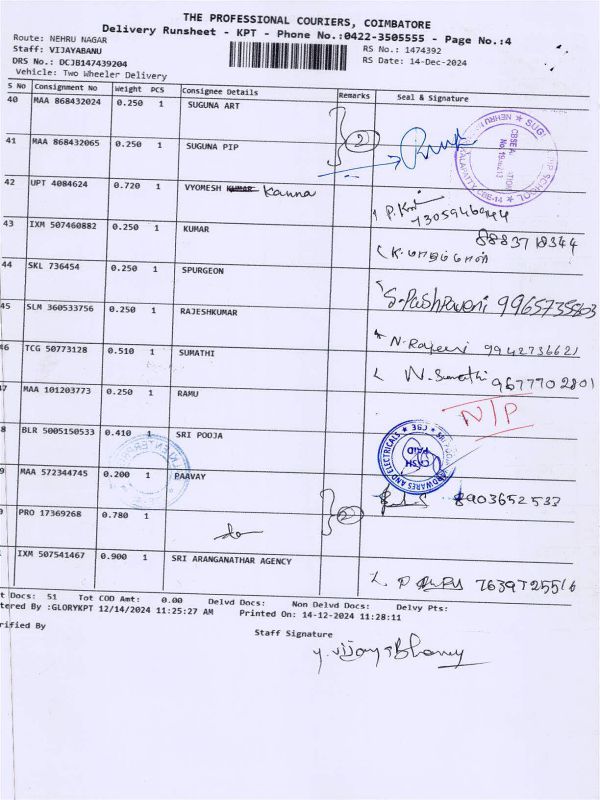 THE PROFESSIONAL COURIERS, COIMBATORE
Delivery Runsheet - KPT - Phone No.:0422-3505555 - Page No.:4
Route: NEHRU NAGAR
Staff: VIJAYABANU
DRS No.: DCJB147439204
Vehicle: Two Wheeler Delivery
RS No.: 1474392
RS Date: 14-Dec-2024
S No Consignment No Weight PCS Consignee Details Remarks Seal & Signature
40 MAA 868432024 0.250 1 SUGUNA ART
41 MAA 868432065 0.250 1 SUGUNA PIP 2
42 UPT 4084624 0.720 1 VYOMESH KUMAR Kanna
43 IXM 507460882 0.250 1 KUMAR 8883718344
44 SKL 736454 0.250 1 SPURGEON 9965735803
45 SLM 360533756 0.250 1 RAJESHKUMAR 9942736621
46 TCG 50773128 0.510 1 SUMATHI N. Sumathi 9677702801
47 MAA 101203773 0.250 1 RAMU N/P
8 BLR 5005150533 0.410 1 SRI POOJA CASH PAID
9 MAA 572344745 0.200 1 PAAVAY 8903652533
PRO 17369268 0.780 1 2
IXM 507541467 0.900 1 SRI ARANGANATHAR AGENCY 7639725516
t Docs: 51 Tot COD Amt: 0.00 Delvd Docs: Non Delvd Docs: Delvy Pts:
tered By :GLORYKPT 12/14/2024 11:25:27 AM Printed On: 14-12-2024 11:28:11
rified By
Staff Signature